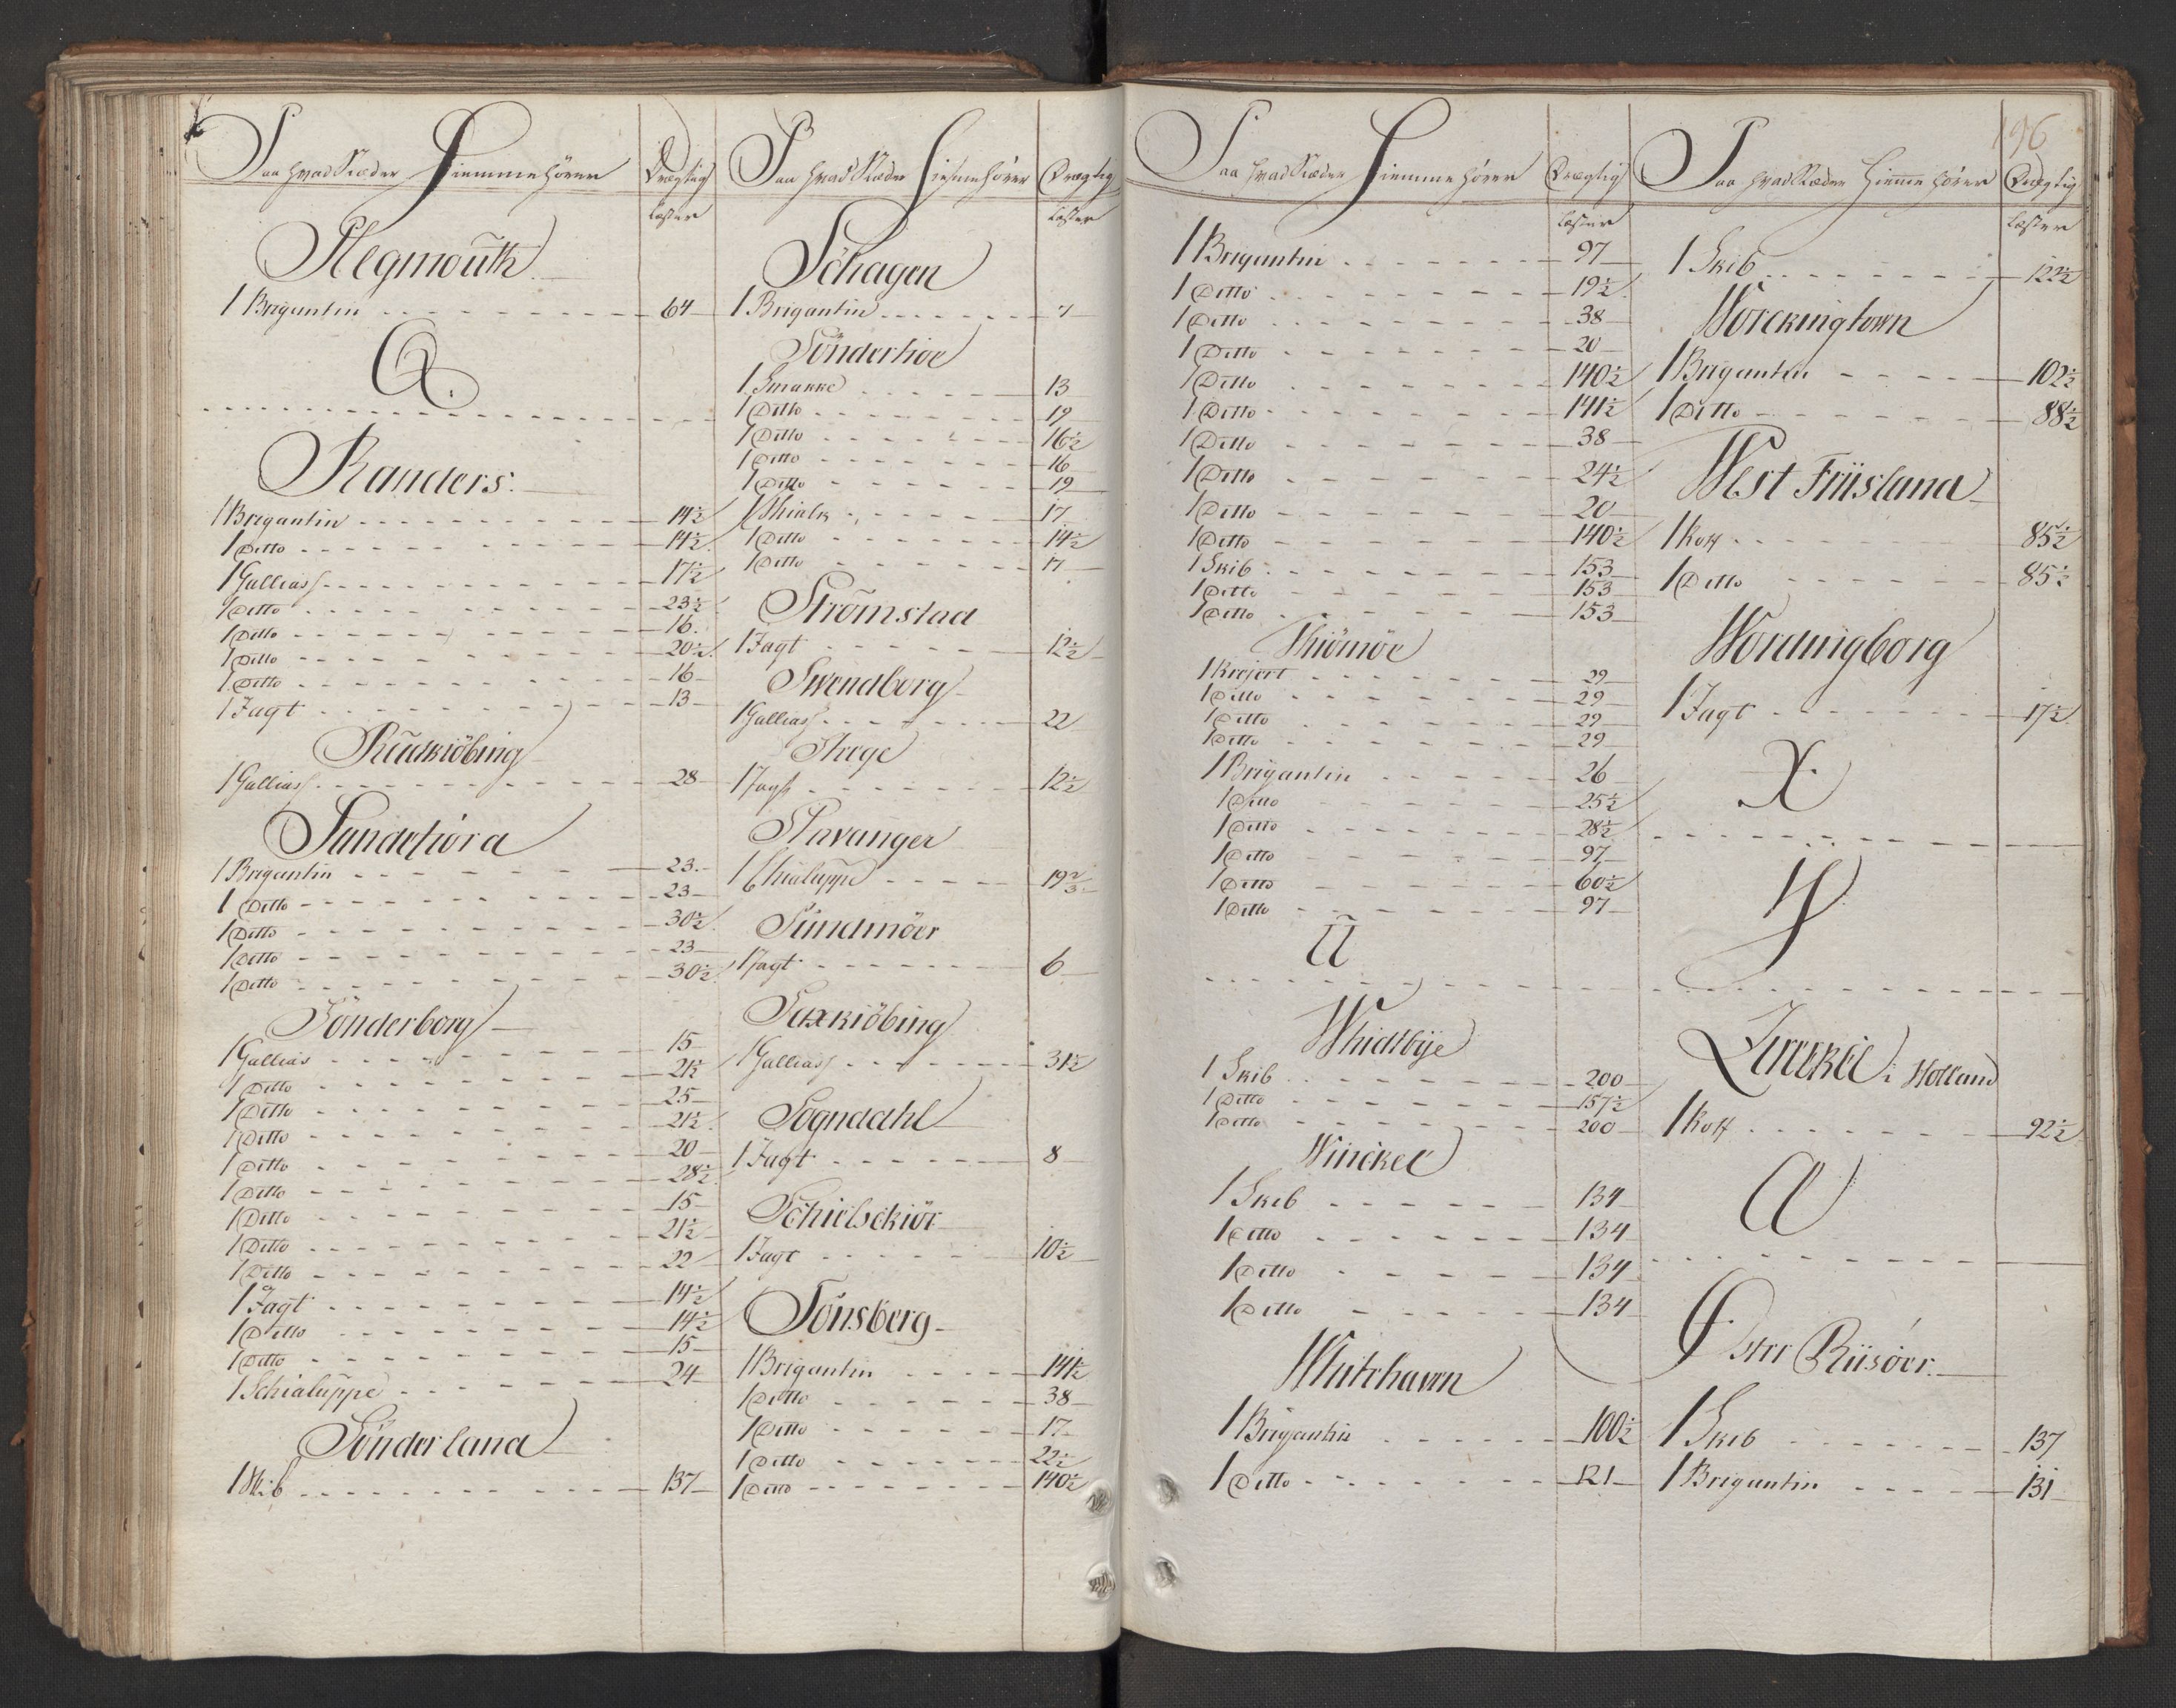 Paa hvad Stæder Hiemmehörer
Drægtig
Læster
Plegmouth
1 Brigantin 64
Q.
Randers.
1 Brigantin 14½
1 Ditto 14½
1 Galliass 17½
1 Ditto 23½
1 Ditto 16.
1 Ditto 20½
1 Ditto 16
1 Jagt 13
Rudkiöbing
1 Galliass 28
Sandefiord
1 Brigantin 23.
1 Ditto 23
1 Ditto 30½
1 Ditto 23
1 Ditto 30½
Sönderborg
1 Gallias 15
1 Ditto 21½
1 Ditto 25
1 Ditto 21½
1 Ditto 20
1 Ditto 28½
1 Ditto 15
1 Ditto 21½
1 Ditto 22
1 Jagt 14½
1 Ditto 14½
1 Ditto 15
1 Schialuppe 24
Sönderland
1 Skib 137
Paa hvad Stæder Hiemmehörer
Drægtig
Læster
Schagen
1 Brigantin 7
Sönderhoe
1 Smakke 13
1 Ditto 19
1 Ditto 16½
1 Ditto 16
1 Ditto 19
1 Thialk 17
1 Ditto 14½
1 Ditto 17
Strömstad
1 Jagt 12½
Swendborg
1 Galliass 22
Stege
1 Jagt 12½
Stavanger
1 Chialuppe 19⅔
Sundmöer
1 Jagt 6
Saxkiöbing
1 Galliass 31½
Sogndahl
1 Jagt 8
Schielschiör
1 Jagt 10½
Tönsberg
1 Brigantin 141½
1 Ditto 38
1 Ditto 17
1 Ditto 22½
1 Ditto 140½
Paa hvad Stæder Hiemmehörer
Drægtig
Læster
1 Brigantin 97
1 Ditto 19½
1 Ditto 38
1 Ditto 20
1 Ditto 140½
1 Ditto 141½
1 Ditto 38
1 Ditto 24½
1 Ditto 20
1 Ditto 140½
1 Skib 153
1 Ditto 153
1 Ditto 153
Thiömöe
1 Krejert 29
1 Ditto 29
1 Ditto 29
1 Ditto 29
1 Brigantin 26
1 Ditto 25½
1 Ditto 28½
1 Ditto 97
1 Ditto 60½
1 Ditto 97
U
Whidtbye
1 Skib 200
1 Ditto 157½
1 Ditto 200
Winckel
1 Skib 134
1 Ditto 134
1 Ditto 134
1 Ditto 134
Whitehaven
1 Brigantin 100½
1 Ditto 121
196
Paa hvad Stæder Hiemmehörer
Drægtig
Læster
1 Skib 122½
Worckingtown
1 Brigantin 102½
1 Ditto 88½
West Friisland
1 Koff 85½
1 Ditto 85½
Wordingborg
1 Jagt 17½
X.
Y
Zirckee i Holland
1 Koff 92½
Œ
Öster Riisöer.
1 Skib 137
1 Brigantin 131